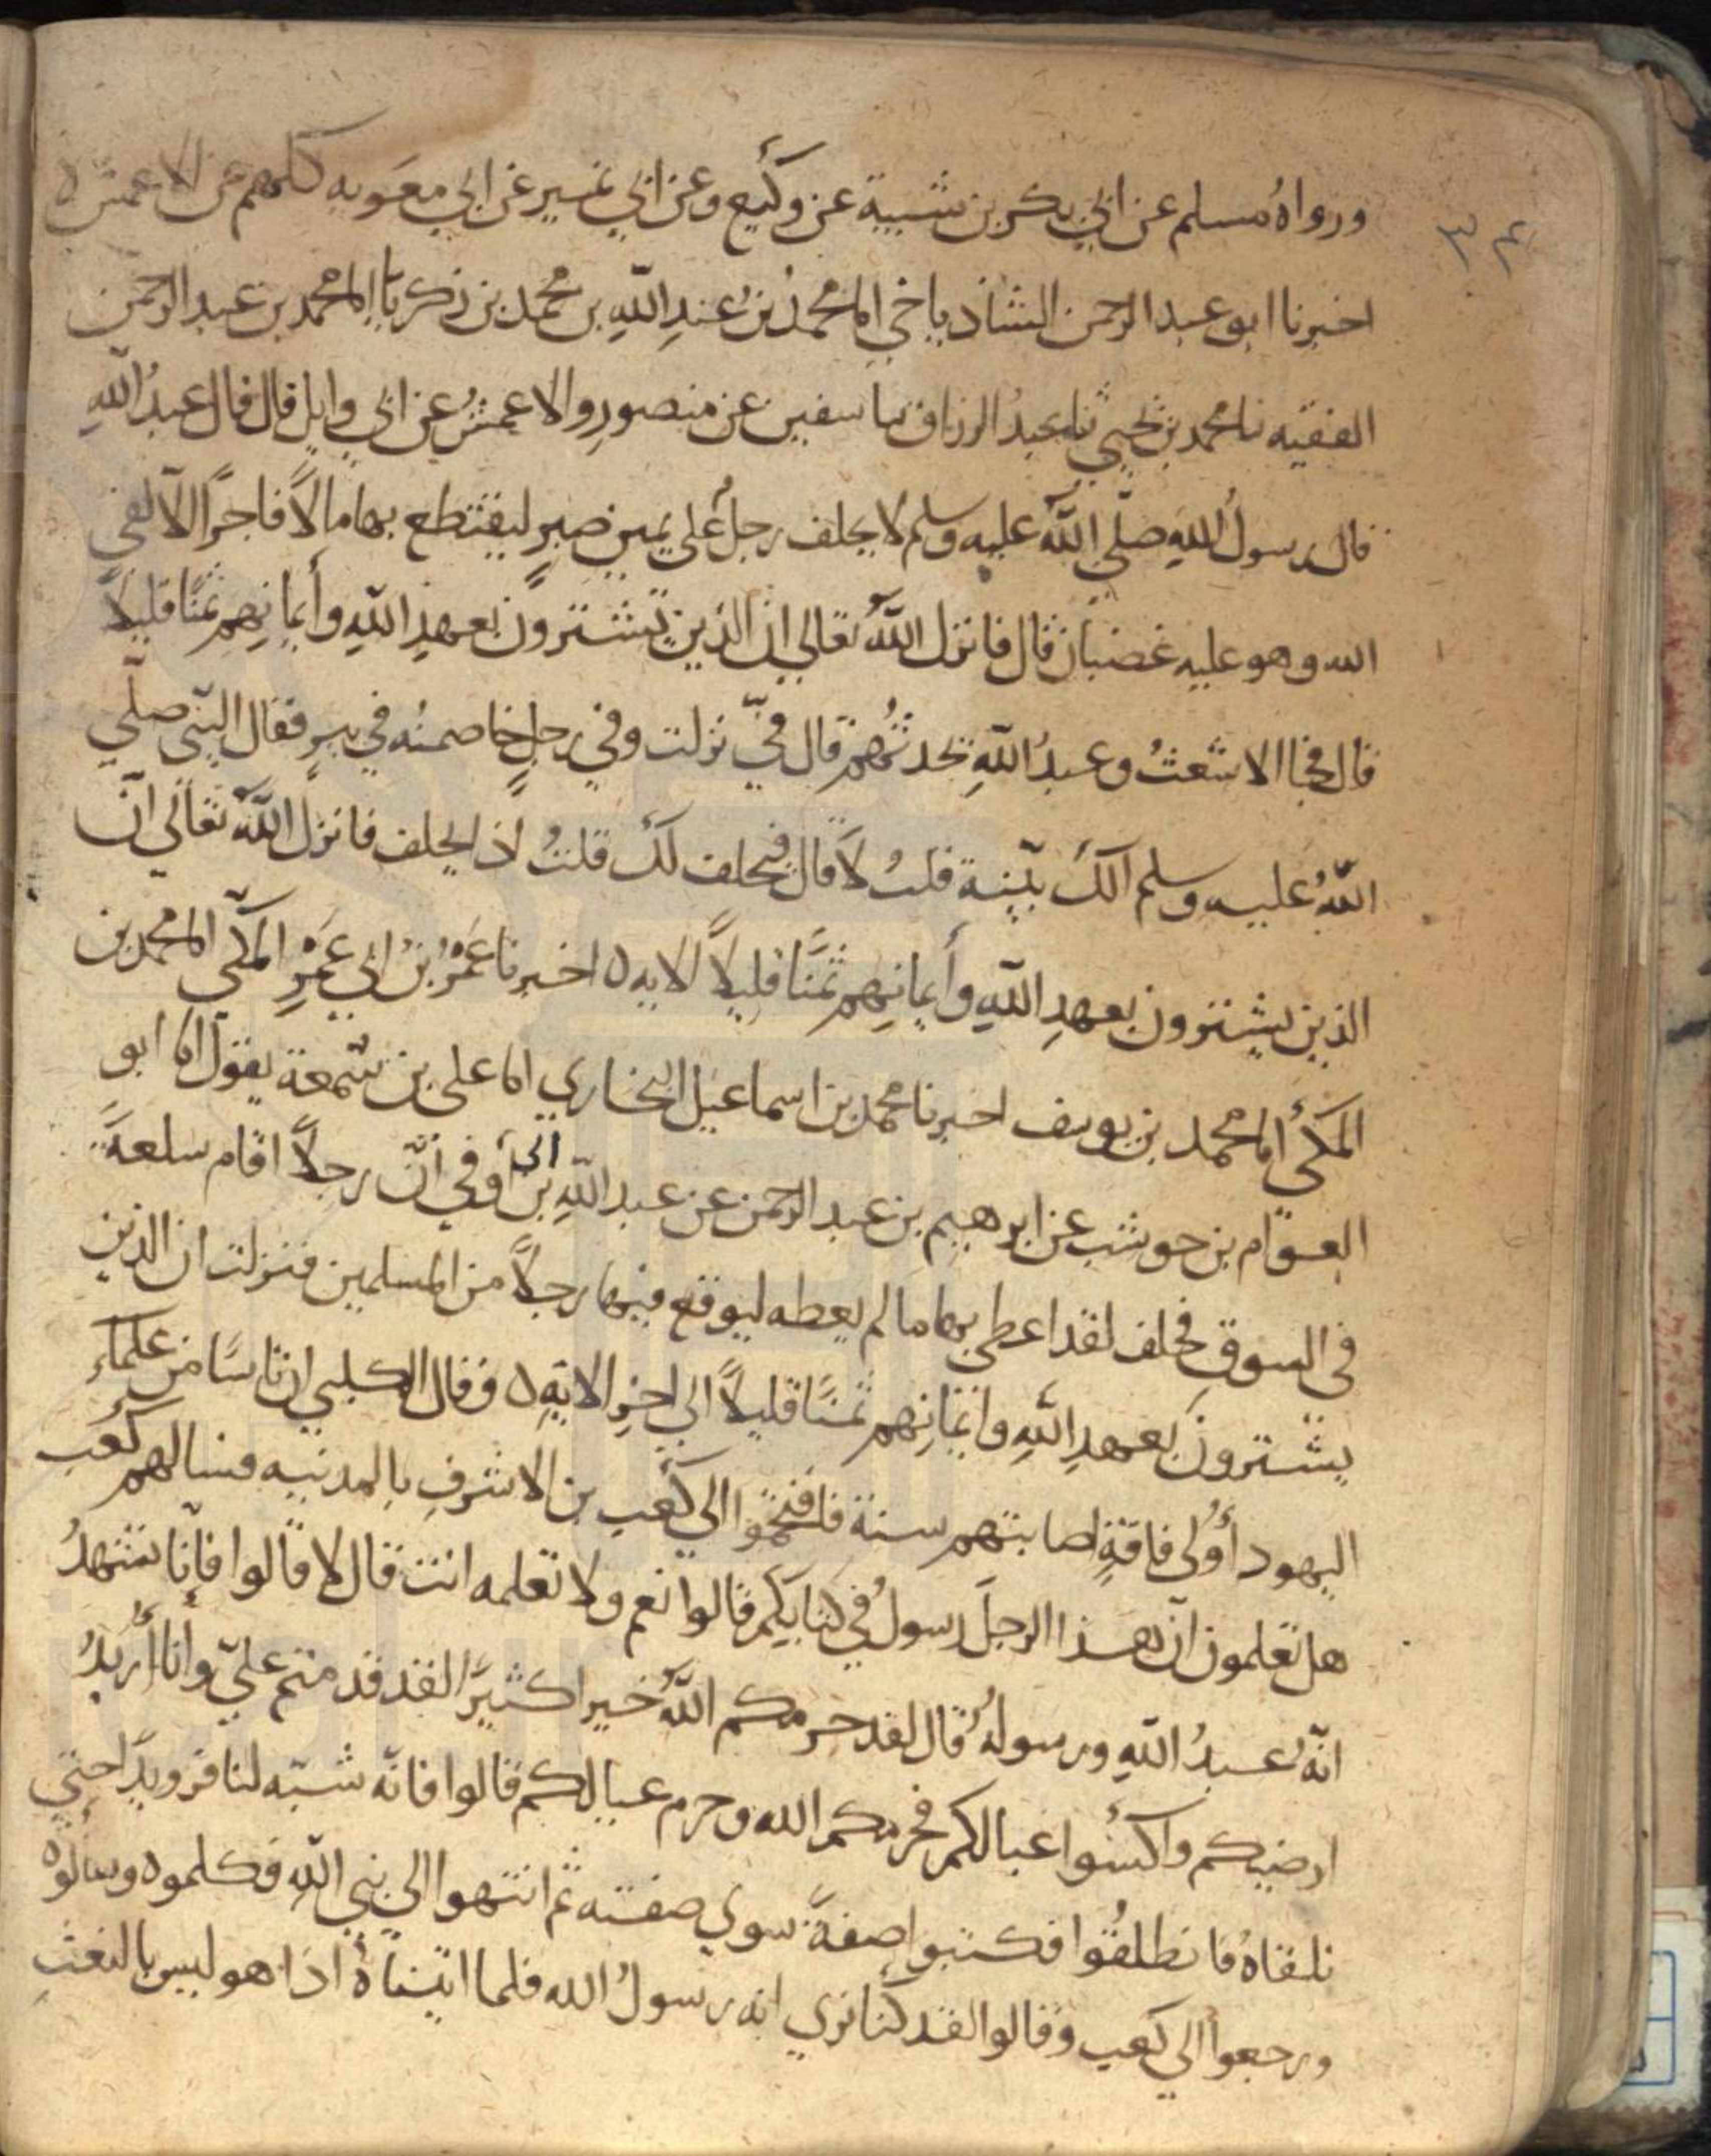 ٣٤
ورواهُ مسلم عن ابي بكر بن شيبة عن وكيع وعن ابي نمير عن ابي معوية كلهم عن الاعمش ٥
اخبرنا ابو عبد الرحمن الشاذياخي انا محمد بن عبدِ اللهِ بن محمد بن زكريا انا محمد بن عبد الرحمن
الفقيه نا محمد بن يحيي نا عبدُ الرزاق نا سفين عن منصورٍ والاعمش عن ابي وايل قال قال عبدُ اللهِ
قال رسولُ اللهِ صلّي اللهُ عليه وسلم لا يحلف رجلٌ علي يمين صبرٍ ليقتطع بها مالاً فاجرًا الّا لقي
الله وهو عليه غضبان قال فانزل اللهُ تعالي ان الذين يشترون بعهدِ اللهِ وأيمانِهم ثمنًا قليلاً
قال فجا الاشعثُ وعبدُ اللهِ يحدثُهم قال فيّ نزلت وفي رجلٍ خاصمتُه في بيرٍ فقال النبّي صلّي
اللهُ عليه وسلم الكَ بيّنة قلتُ لا قال فيحلف لكَ قلتُ اذا يحلف فانزل اللهُ تعالي انّ
الذين يشترون بعهدِ اللهِ وأيمانِهم ثمنًا قليلاً الايه ٥ اخبرنا عَمرُو بنُ ابي عَمرٍو المكّي انا محمد بن
المكّي انا محمد بن يوسف اخبرنا محمد بن اسماعيل البخاري انا علي بن سمعة يقول انا ابو
العوّام بن حوشب عن ابرهيم بن عبد الرحمن عن عبد اللهِ بن ابي أوفي أنّ رجلاً اقام سلعةً
في السوقِ فحلف لقد اعطي بها ما لم يعطه ليوقع فيها رجلاً من المسلمين فنزلت ان الذين
يشترونَ بعهدِ اللهِ وايمانِهم ثمنًا قليلاً الي اخرِ الايةِ ٥ وقال الكلبي ان ناسًا من علماءِ
اليهود أُولي فاقةٍ اصابتهم سنة فاقتحموا الي كعب بن الاشرفِ بالمدينه فسالهم كعب
هل تعلمون انّ هذا الرجلَ رسولُ في كتابكم قالوا نعم ولا تعلمه انت قال لا قالوا فاِنّا نشهدُ
انّه عبدُ اللهِ ورسولهُ قال لقد حرمكم اللهُ خيرا كثيرًا لقد قدمتم عليّ وأنا أُريدُ
ارضيكم واكسُوا عيالكم فحرمكم الله وحرم عيالكم قالوا فانّه شبّه لنا فرويدًا حتي
نلقاهُ فانطلقُوا فكتبوا صفةً سوي صفته ثم انتهوا الي نبي اللهِ فكلموه وسألوه
ورجعوا الي كعب وقالوا لقد كنا نري انه رسولُ الله فلما اتيناهُ اذا هو ليس بالنعتِ